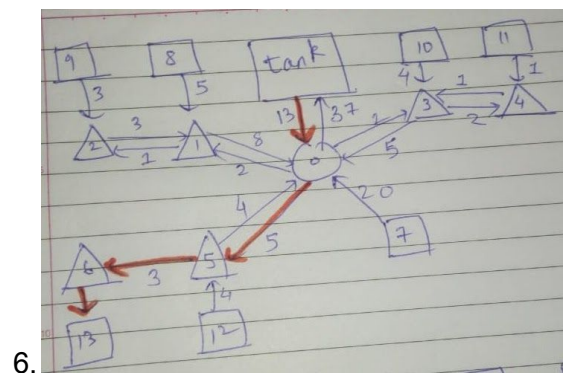 9
8
tank
10
11
3
5
13
37
4
1
1
2
3
1
2
1
8
2
0
3
4
2
5
4
5
20
7
6
3
5
4
13
12
6.